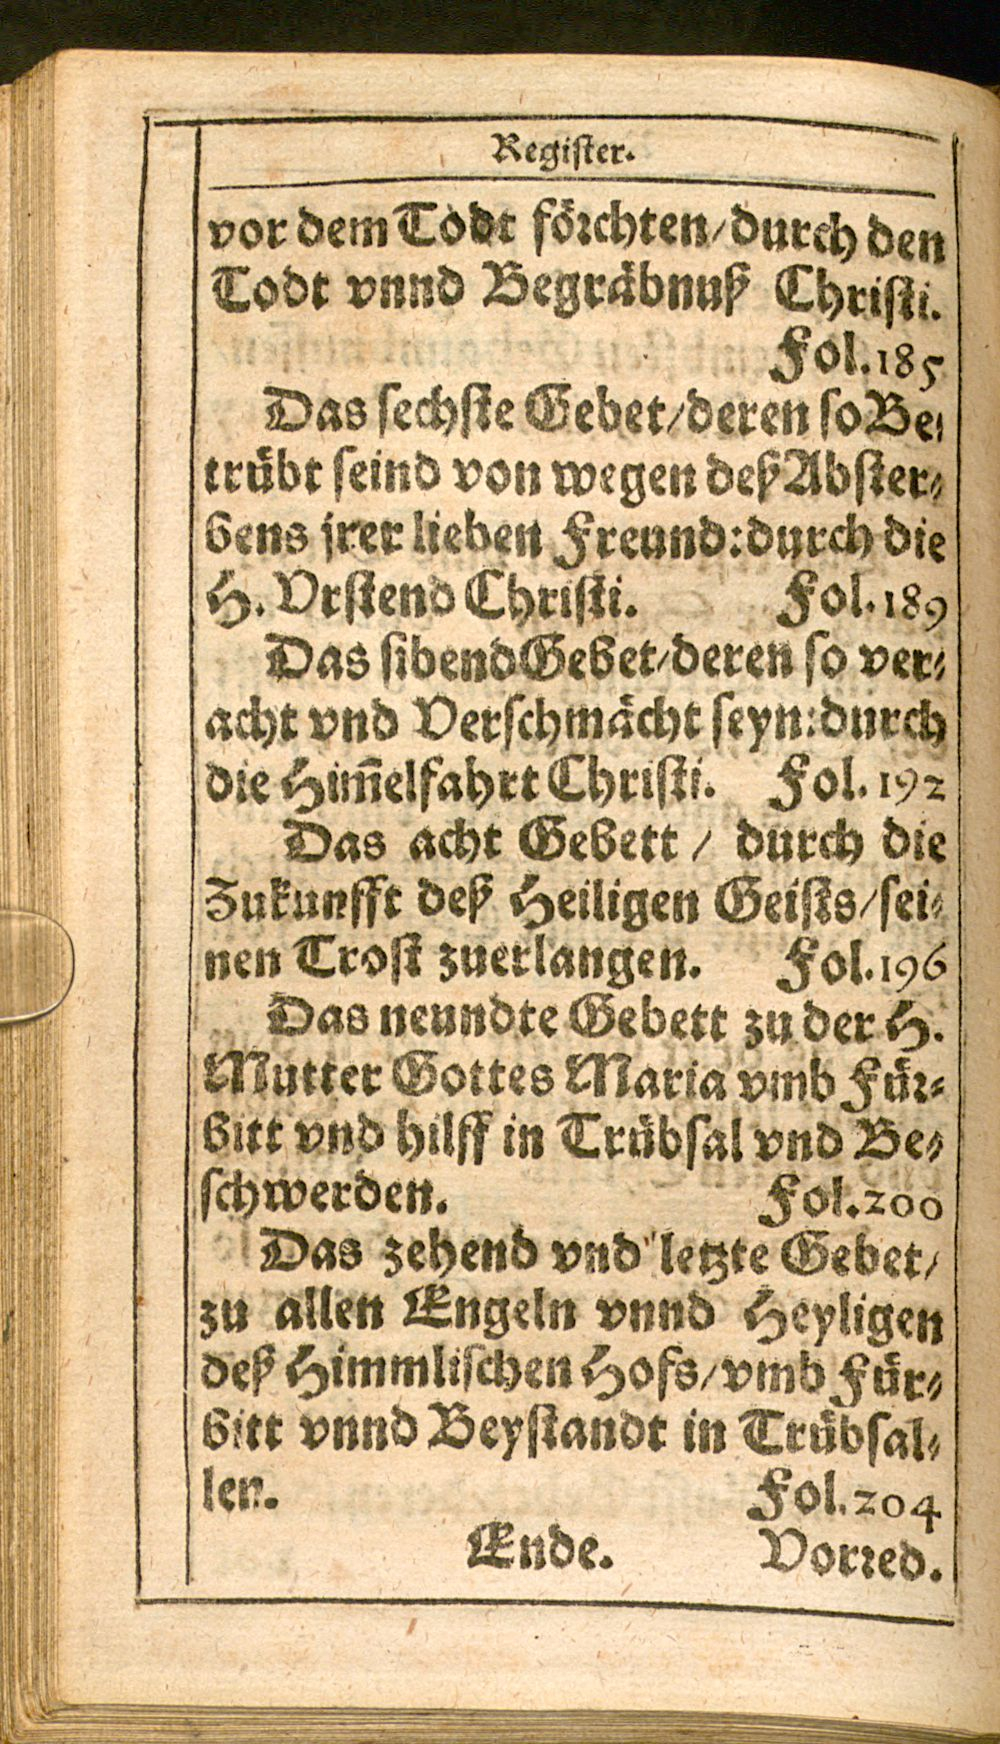 Register.
vor dem Todt förchten/durch den
Todt vnnd Begräbnuß Christi.
Fol.185
Das sechste Gebet/deren so Be⸗
trübt seind von wegen deß Abster⸗
bens jrer lieben Freund:durch die
H. Vrstend Christi. Fol.189
Das sibend Gebet/deren so ver⸗
acht vnd Verschmächt seyn:durch
die Him̄elfahrt Christi. Fol.192
Das acht Gebett / durch die
Zukunfft deß Heiligen Geists/sei⸗
nen Trost zuerlangen. Fol.196
Das neundte Gebett zu der H.
Mutter Gottes Maria vmb Für⸗
bitt vnd hilff in Trübsal vnd Be⸗
schwerden. Fol.200
Das zehend vnd letzte Gebet/
zu allen Engeln vnnd Heyligen
deß Himmlischen Hofs/vmb Für⸗
bitt vnnd Beystandt in Trübsal⸗
len. Fol.204
Ende. Vorred.